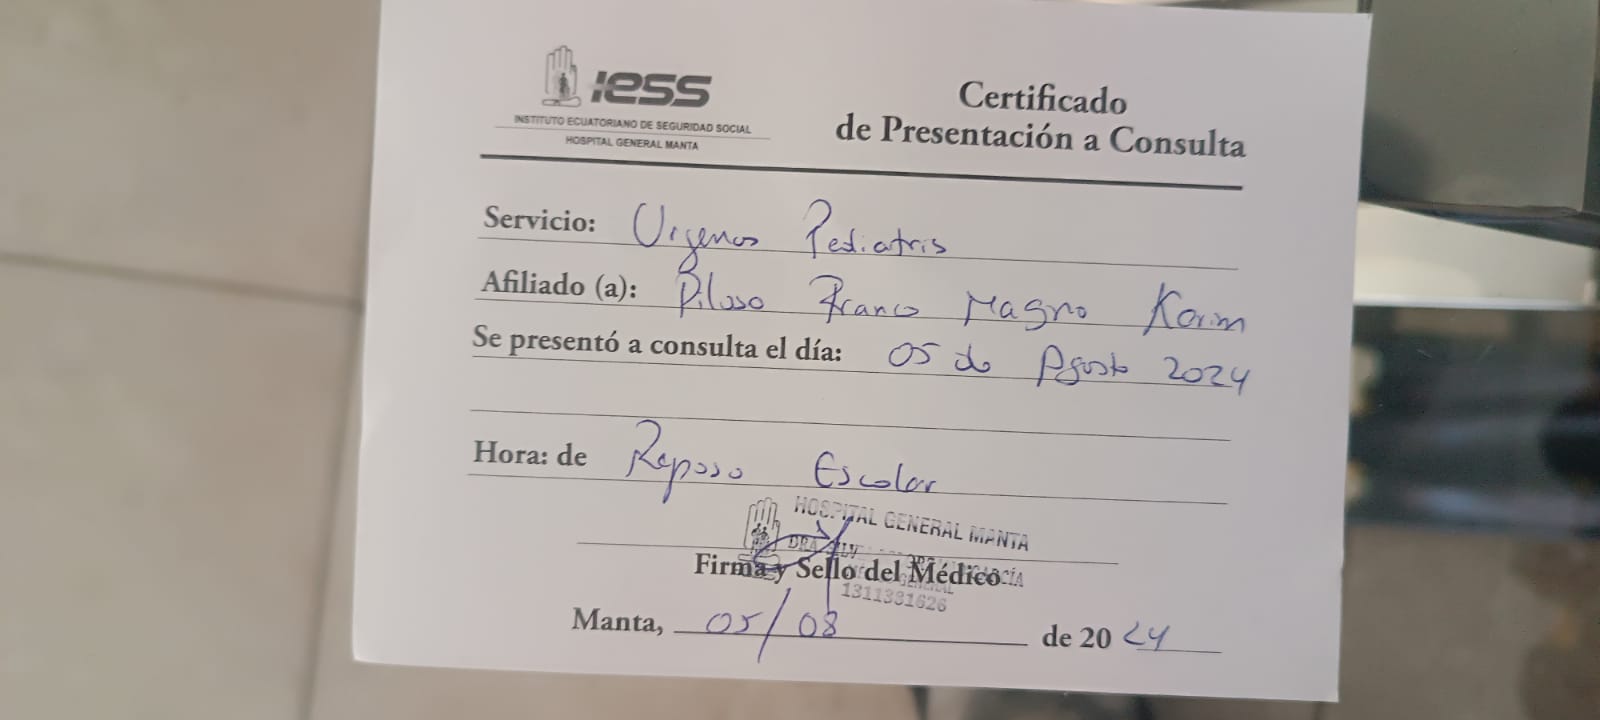 IESS
INSTITUTO ECUATORIANO DE SEGURIDAD SOCIAL
HOSPITAL GENERAL MANTA
Certificado
de Presentación a Consulta
Servicio: Urgencos Pediatris
Afiliado (a): Piloso Franco Magno Karim
Se presentó a consulta el día: 05 de Agosto 2024
Hora: de Reposo Escolar
HOSPITAL GENERAL MANTA
DRA
GARCÍA
GENERAL
1311381626
Firma y Sello del Médico
Manta, 05/08 de 2024